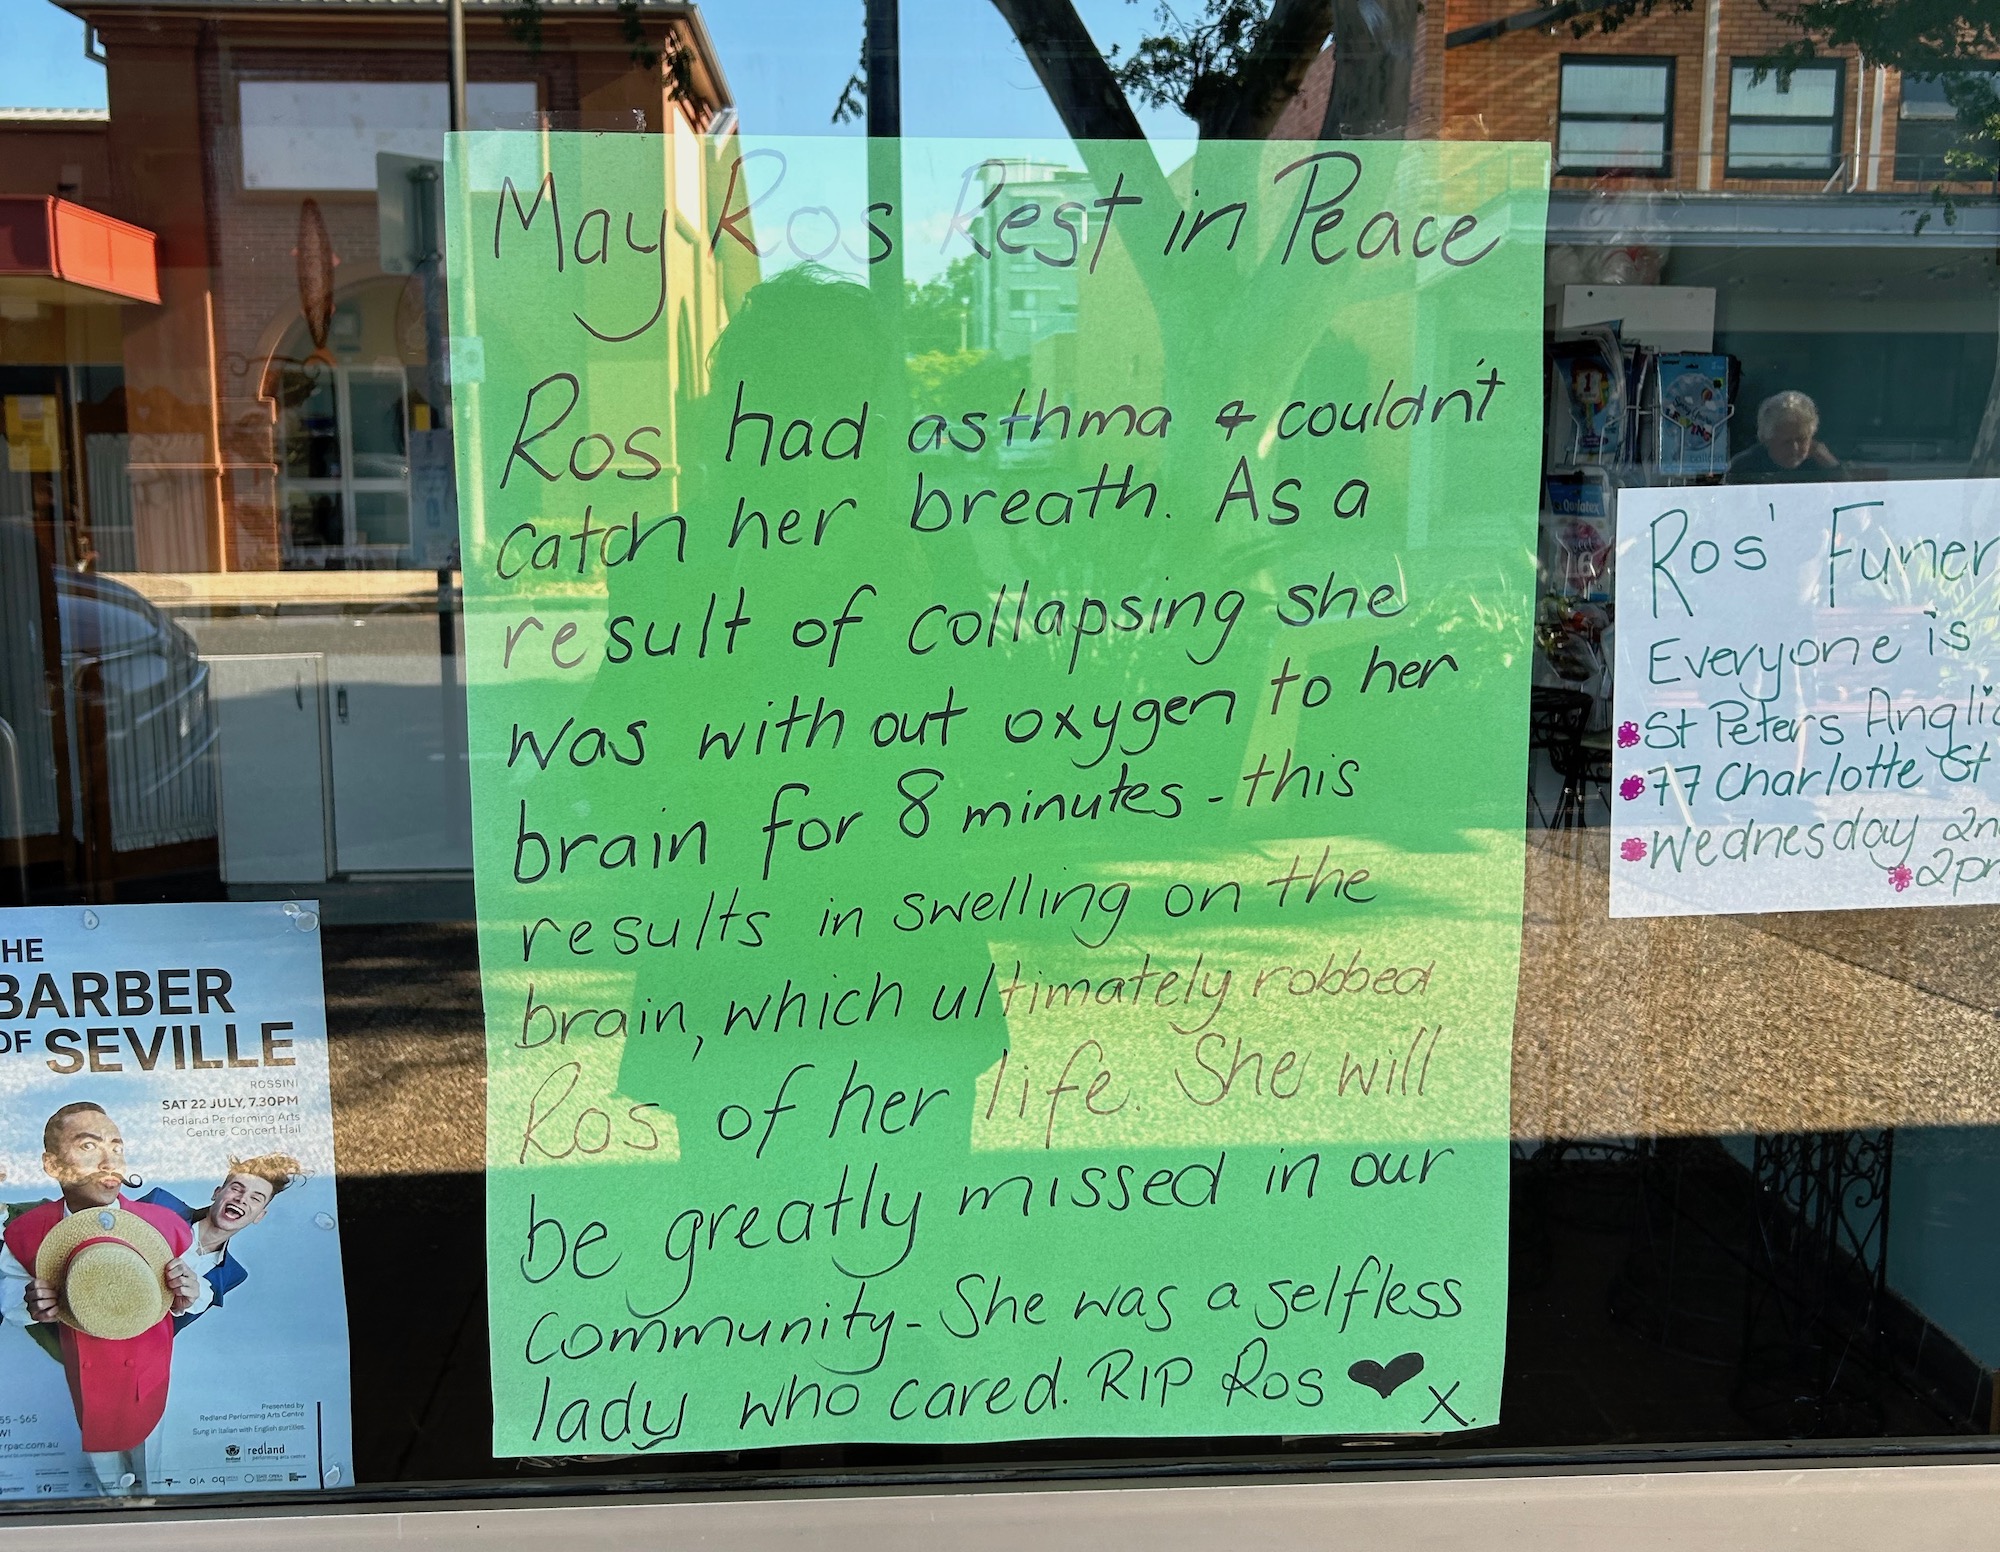 May Ros Rest in Peace
Ros had asthma & couldn't
catch her breath. As a
result of collapsing she
was with out oxygen to her
brain for 8 minutes - this
results in swelling on the
brain, which ultimately robbed
Ros of her life. She will
be greatly missed in our
community - She was a selfless
lady who cared. RIP Ros ♥ x.
Ros' Funer
Everyone is
St Peters Anglic
77 Charlotte St
Wednesday 2n
2pm
HE
BARBER
OF SEVILLE
ROSSINI
SAT 22 JULY, 7.30PM
Redland Performing Arts
Centre, Concert Hall
55 - $65
rpac.com.au
Presented by
Redland Performing Arts Centre
Sung in Italian with English surtitles.
redland
performing arts centre